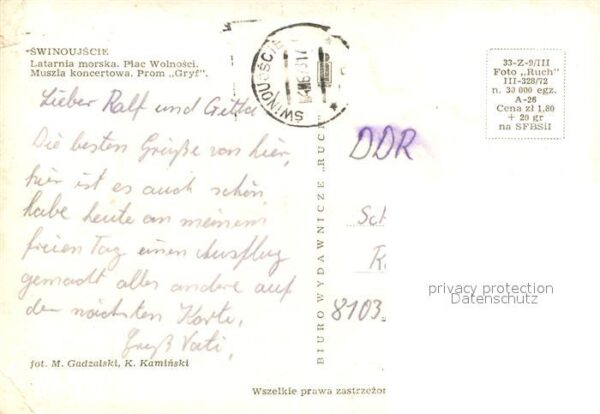 ŚWINOUJŚCIE
Latarnia morska. Plac Wolności.
Muszla koncertowa. Prom „Gryf”.
ŚWINOUJŚCIE
33-Z-9/III
Foto „Ruch”
III-328/72
n. 30 000 egz.
A-26
Cena zł 1.80
+ 20 gr
na SFBSiI
Lieber Ralf und Gitta
Die besten Grüße von hier,
hier ist es auch schön
habe heute an meinem
freien Tag einen Ausflug
gemacht alles andere auf
der nächsten Karte.
Gruß Vati,
fot. M. Gadzalski, K. Kamiński
BIURO WYDAWNICZE „RUCH”
DDR
Sch
8103
privacy protection
Datenschutz
Wszelkie prawa zastrzeżon